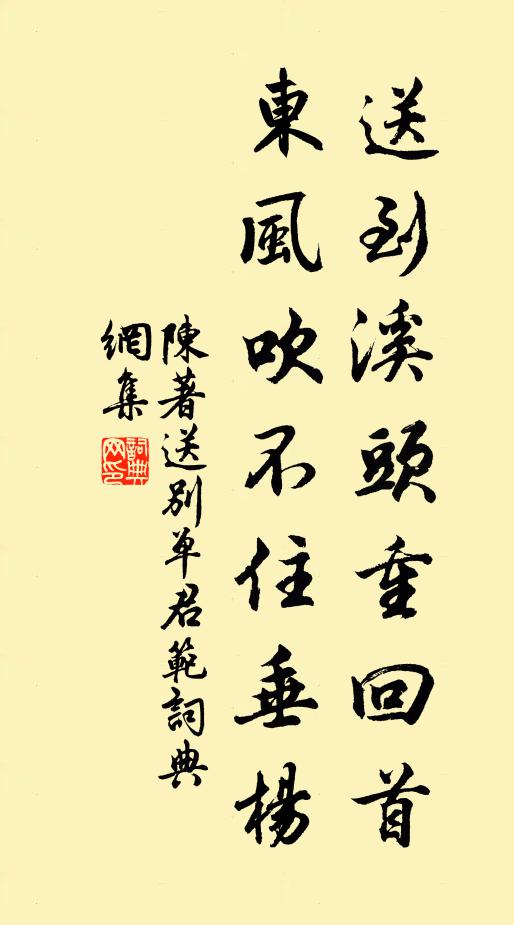 送到溪頭重回首
東風吹不住垂楊
陳著送別单君範詞典
網集
詞典
网印